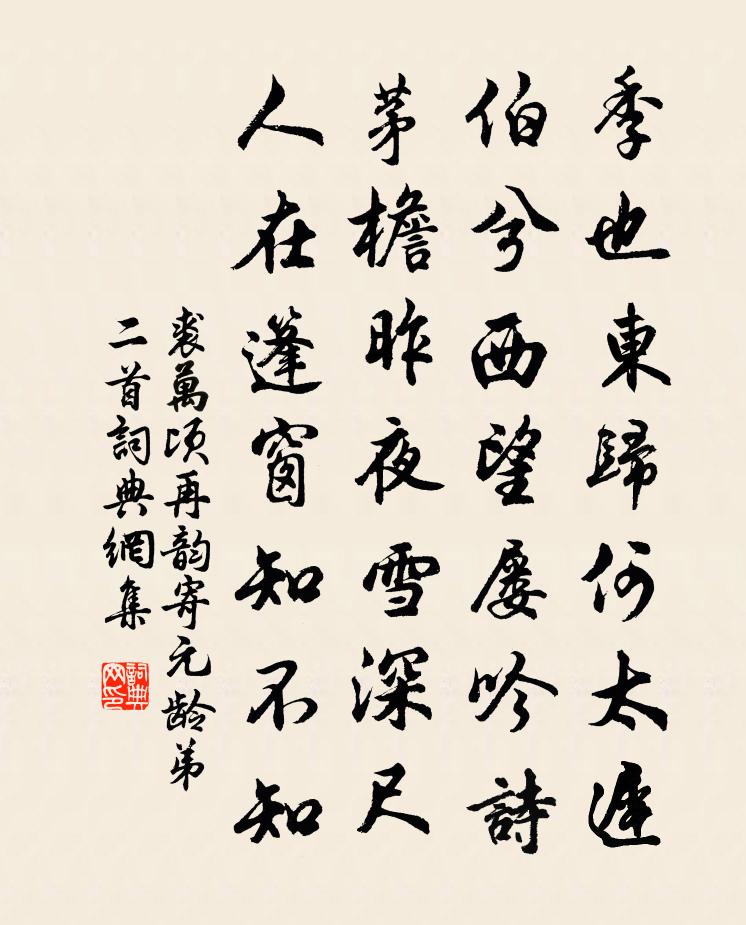 季也東歸何太遲
伯兮西望屡吟詩
茅檐昨夜雪深尺
人在蓬窗知不知
裘萬頃再韵寄元龄弟
二首詞典網集
詞典網印